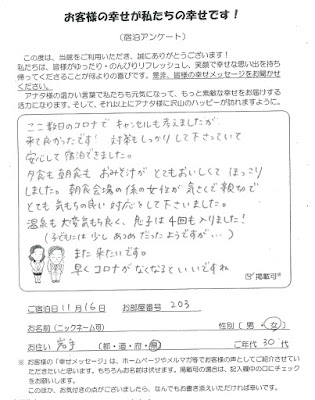 お客様の幸せが私たちの幸せです！
（宿泊アンケート）
この度は、当館をご利用いただき、誠にありがとうございます！
私たちは、皆様がゆったり・のんびりリフレッシュし、笑顔で幸せな思い出を持ち
帰ってくださることが何よりの喜びです。是非、皆様の幸せメッセージをお聞かせ
ください。
アナタ様の温かい言葉で私たちも元気になって、もっと素敵な幸せをお届けする
活力になります。そして、それ以上にアナタ様に沢山のハッピーが訪れますように。
ここ数日のコロナで キャンセルも考えましたが
来て良かったです！ 対策もしっかりして下さっていて
安心して宿泊できました。
夕食も朝食も おみそ汁が とてもおいしくて ほっこり
しました。朝食会場の係の女性が 気さくで親切で
とても気もちの良い対応をして下さいました。
温泉も大変気もち良く、息子は4回も入りました！
（子どもには少しあつめだったようですが…）
また来たいです。
早くコロナがなくなるといいですね
掲載可*
ご宿泊日 11月16日 お部屋番号 203
お名前（ニックネーム可） 性別（男・女）
お住い 岩手（都・道・府・県） ご年代 30代
※ お客様の「幸せメッセージ」は、ホームページやメルマガ等でお客様の声としてご紹介させてい
ただきたいと思います。もちろんお名前は伏せます。掲載可の場合は、記入欄中の口にチェック
をお願いします。
このほか、お気付きの点がございましたら、なんでもお書き添えいただければ幸いです。